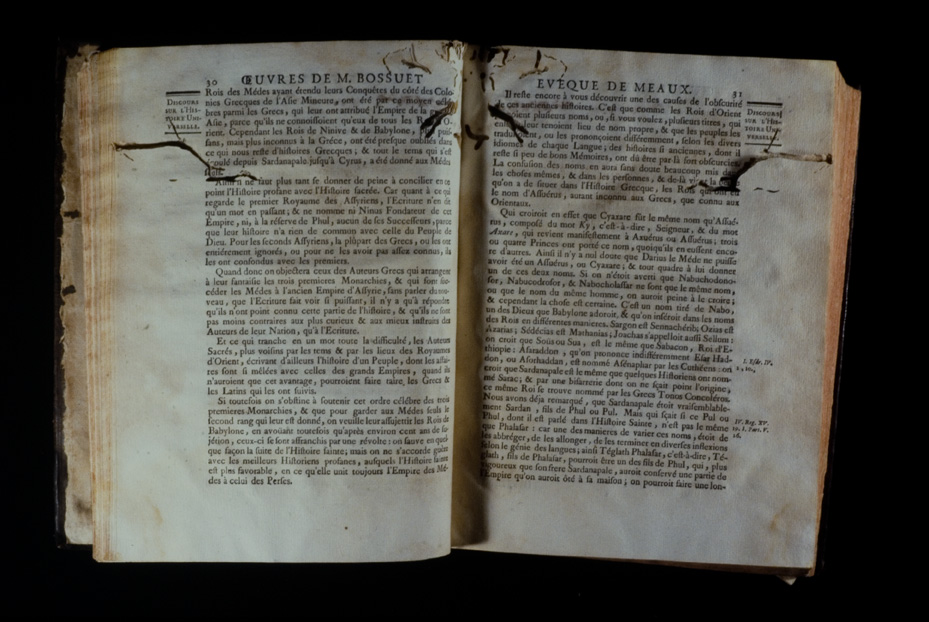 30 ŒUVRES DE M. BOSSUET
DISCOURS
SUR L'HIS-
TOIRE UNI-
VERSELLE.
Rois des Médes ayant étendu leurs Conquêtes du côté des Colo-
nies Grecques de l'Asie Mineure, ont été par ce moyen célé-
bres parmi les Grecs, qui leur ont attribué l'Empire de la
Asie, parce qu'ils ne connoissoient qu'eux de tous les Rois O-
rient. Cependant les Rois de Ninive & de Babylone, plus puis-
sans, mais plus inconnus à la Gréce, ont été presque oubliés dans
ce qui nous reste d'histoires Grecques; & tout le tems qui s'est
écoulé depuis Sardanapale jusqu'à Cyrus, a été donné aux Médes
Ainsi il ne faut plus tant se donner de peine à concilier en ce
point l'Histoire profane avec l'Histoire sacrée. Car quant à ce qui
regarde le premier Royaume des Assyriens, l'Ecriture n'en dit
qu'un mot en passant; & ne nomme ni Ninus Fondateur de cet
Empire, ni, à la réserve de Phul, aucun de ses Successeurs, parce
que leur histoire n'a rien de commun avec celle du Peuple de
Dieu. Pour les seconds Assyriens, la plûpart des Grecs, ou les ont
entiérement ignorés, ou pour ne les avoir pas assez connus, ils
les ont confondus avec les premiers.
Quand donc on objectera ceux des Auteurs Grecs qui arrangent
à leur fantaisie les trois premieres Monarchies, & qui font suc-
céder les Médes à l'ancien Empire d'Assyrie, sans parler du nou-
veau, que l'Ecriture fait voir si puissant, il n'y a qu'à répondre
qu'ils n'ont point connu cette partie de l'histoire, & qu'ils ne sont
pas moins contraires aux plus curieux & aux mieux instruits des
Auteurs de leur Nation, qu'à l'Ecriture.
Et ce qui tranche en un mot toute la difficulté, les Auteurs
Sacrés, plus voisins par les tems & par les lieux des Royaumes
d'Orient, écrivant d'ailleurs l'histoire d'un Peuple, dont les affai-
res sont si mêlées avec celles des grands Empires, quand ils
n'auroient que cet avantage, pourroient faire taire les Grecs &
les Latins qui les ont suivis.
Si toutefois on s'obstine à soutenir cet ordre célébre des trois
premieres Monarchies, & que pour garder aux Médes seuls le
second rang qui leur est donné, on veuille leur assujettir les Rois de
Babylone, en avoüant toutefois qu'après environ cent ans de su-
jétion, ceux-ci se sont affranchis par une révolte: on sauve en quel-
que façon la suite de l'Histoire sainte; mais on ne s'accorde guéres
avec les meilleurs Historiens profanes, ausquels l'Histoire sainte
est plus favorable, en ce qu'elle unit toujours l'Empire des Mé-
des à celui des Perses.
EVEQUE DE MEAUX. 31
DISCOURS
SUR L'HIS-
TOIRE UNI-
VERSELLE.
Il reste encore à vous découvrir une des causes de l'obscurité
de ces anciennes histoires. C'est que comme les Rois d'Orient
prenoient plusieurs noms, ou, si vous voulez, plusieurs titres, qui
ensuite leur tenoient lieu de nom propre, & que les peuples les
traduisoient, ou les prononçoient différemment, selon les divers
Idiomes de chaque Langue; des histoires si anciennes, dont il
reste si peu de bons Mémoires, ont dû être par-là fort obscurcies.
La confusion des noms en aura sans doute beaucoup mis dans
les choses mêmes, & dans les personnes; & de-là vient la
qu'on a de situer dans l'Histoire Grecque, les Rois qui ont eu
le nom d'Assuérus, autant inconnu aux Grecs, que connu aux
Orientaux.
Qui croiroit en effet que Cyaxare fût le même nom qu'Assué-
rus, composé du mot Ky, c'est-à-dire, Seigneur, & du mot
Axare, qui revient manifestement à Axuérus ou Assuérus; trois
ou quatre Princes ont porté ce nom, quoiqu'ils en eussent enco-
re d'autres. Ainsi il n'y a nul doute que Darius le Méde ne puisse
avoir été un Assuérus, ou Cyaxare; & tout quadre à lui donner
un de ces deux noms. Si on n'étoit averti que Nabuchodono-
sor, Nabucodrosor, & Nabocholassar ne sont que le même nom,
ou que le nom du même homme, on auroit peine à le croire;
& cependant la chose est certaine. C'est un nom tiré de Nabo,
un des Dieux que Babylone adoroit, & qu'on inséroit dans les noms
des Rois en différentes manieres. Sargon est Sennachérib; Ozias est
Azarias; Sédécias est Mathanias; Joachas s'appelloit aussi Sellum:
on croit que Soüs ou Sua, est le même que Sabacon, Roi d'E-
thiopie: Asaraddon, qu'on prononce indifféremment Esar-Had-
don, ou Asorhaddan, est nommé Asénaphar par les Cuthéens: on
croit que Sardanapale est le même que quelques Historiens ont nom-
mé Sarac; & par une bisarrerie dont on ne sçait point l'origine,
ce même Roi se trouve nommé par les Grecs Tonos Concoléros.
Nous avons déja remarqué, que Sardanapale étoit vraisemblable-
ment Sardan, fils de Phul ou Pul. Mais qui sçait si ce Pul ou
Phul, dont il est parlé dans l'Histoire Sainte, n'est pas le même
que Phalasar: car une des manieres de varier ces noms, étoit de
les abbréger, de les allonger, de les terminer en diverses infléxions
selon le génie des langues; ainsi Téglath Phalasar, c'est-à-dire, Té-
glath, fils de Phalasar, pourroit être un des fils de Phul, qui, plus
vigoureux que son frere Sardanapale, auroit conservé une partie de
l'Empire qu'on auroit ôté à sa maison; on pourroit faire une lon-
I. Esdr. IV.
2, 10.
IV. Reg. XV.
19. I. Par. V.
26.